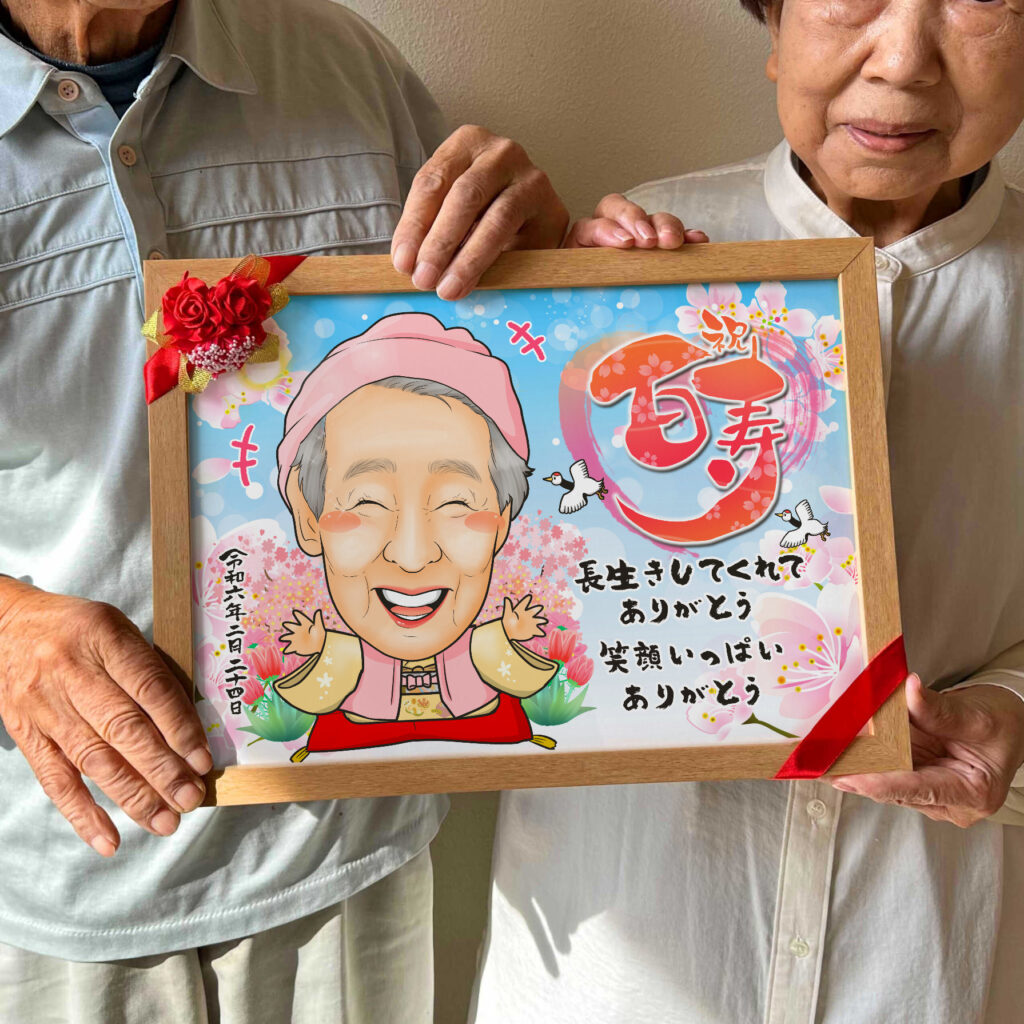 祝
百寿
長生きしてくれて
ありがとう
笑顔いっぱい
ありがとう
令和六年二日二十四日